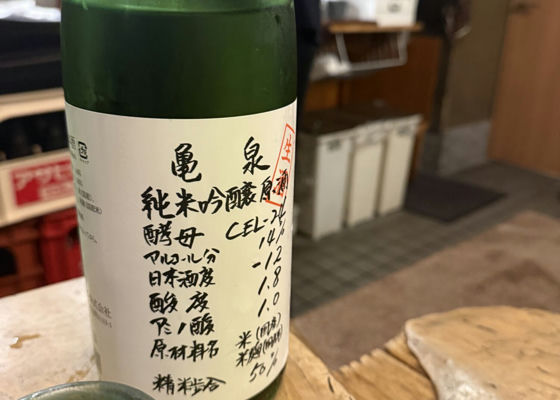 亀泉
生酒
純米吟醸原酒
酵母 CEL-24
アルコール分 14%
日本酒度 -12
酸度 1.8
アミノ酸 1.0
原材料名 米(国産)
米麹(国産米)
精米歩合 50%
アサヒ